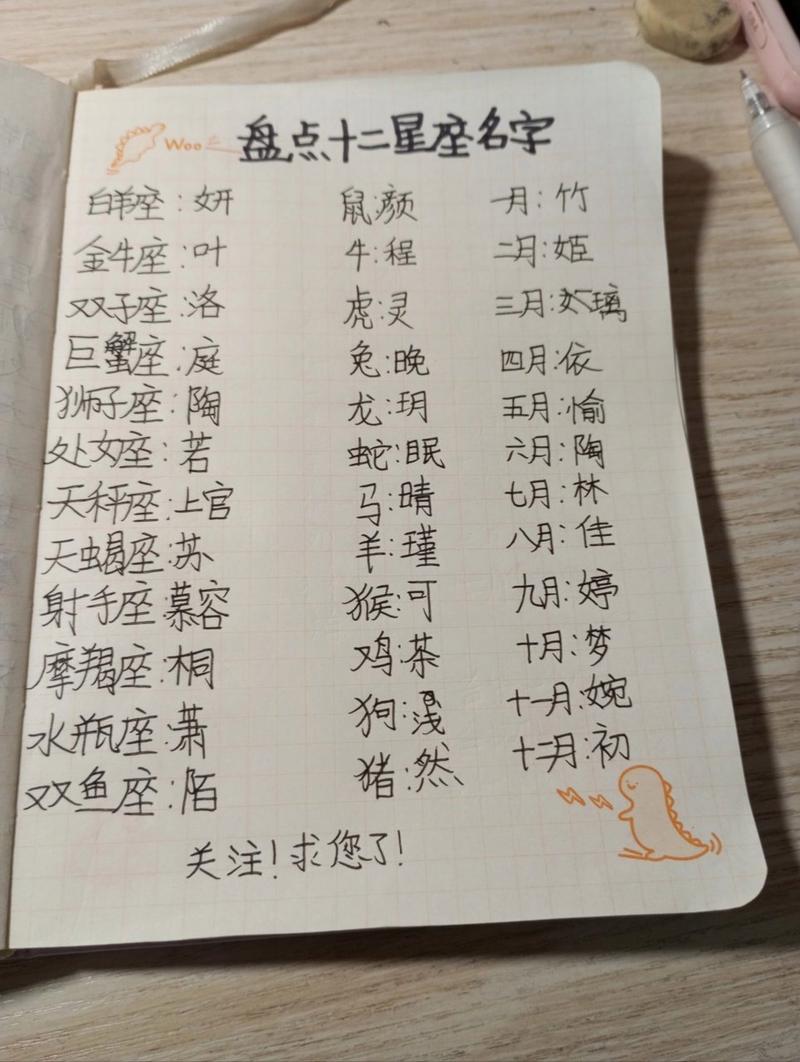 Woo
盘点十二星座名字
白羊座:妍 鼠:颜 一月:竹
金牛座:叶 牛:程 二月:姬
双子座:洛 虎:灵 三月:玻璃
巨蟹座:庭 兔:晚 四月:依
狮子座:陶 龙:玥 五月:愉
处女座:若 蛇:眠 六月:陶
天秤座:上官 马:晴 七月:林
天蝎座:苏 羊:瑾 八月:佳
射手座:慕容 猴:可 九月:婷
摩羯座:桐 鸡:茶 十月:梦
水瓶座:萧 狗:浅 十一月:婉
双鱼座:陌 猪:然 十二月:初
关注!求您了!